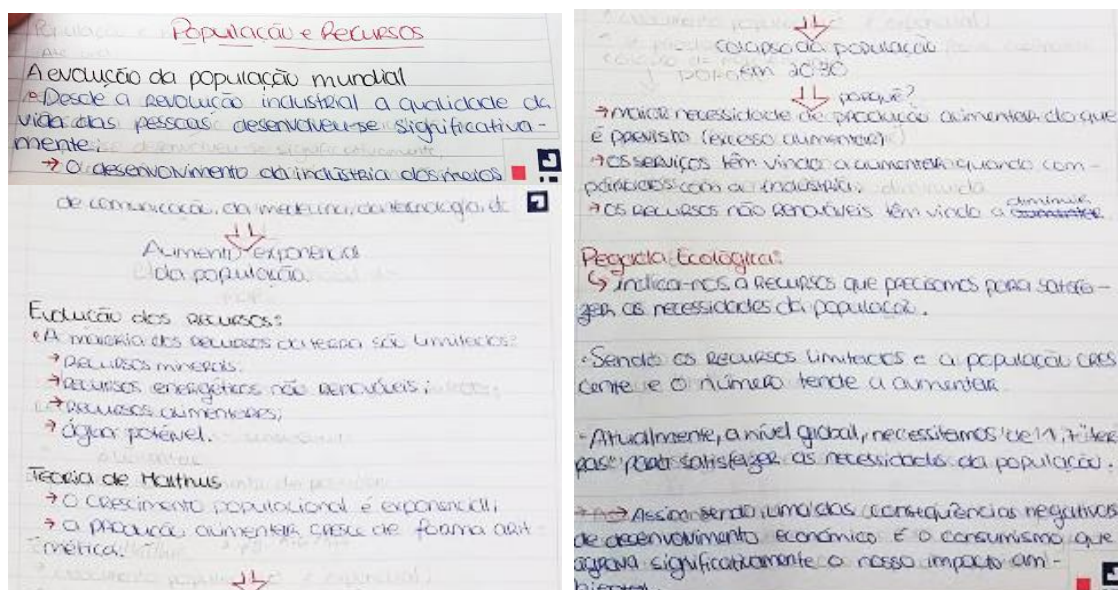 População e Recursos
A evolução da população mundial
• Desde a revolução industrial a qualidade da
vida das pessoas desenvolveu-se significativa-
mente.
→ O desenvolvimento da indústria dos meios
de comunicação, da medicina, da tecnologia, etc
Aumento exponencial
da população.
Evolução dos recursos:
• A maioria dos recursos da terra são limitados:
→ recursos minerais;
→ recursos energéticos não renováveis;
→ recursos alimentares;
→ água potável.
Teoria de Malthus
→ O crescimento populacional é exponencial;
→ a produção alimentar cresce de forma arit
mética.
colapso da população
em 2030
porquê?
→ maior necessidade de produção alimentar do que
é previsto (excesso alimentar)
→ os serviços têm vindo a aumentar quando com-
parados com a indústria.
→ os recursos não renováveis têm vindo a diminuir
Pegada Ecológica:
↳ indica-nos a recursos que precisamos para satisfa-
zer as necessidades da população.
• Sendo os recursos limitados e a população cres
cente o número tende a aumentar
• Atualmente, a nível global, necessitamos de 1,7
para satisfazer as necessidades da população.
→ Assim sendo uma das consequências negativas
de desenvolvimento económico é o consumismo que
agrava significativamente o nosso impacto am-
biental